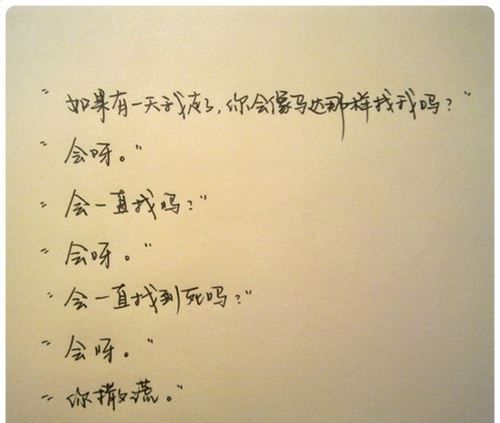 "如果有一天我走了,你会像马达那样找我吗?"
"会呀。"
"会一直找吗?"
"会呀。"
"会一直找到死吗?"
"会呀。"
"你撒谎。"